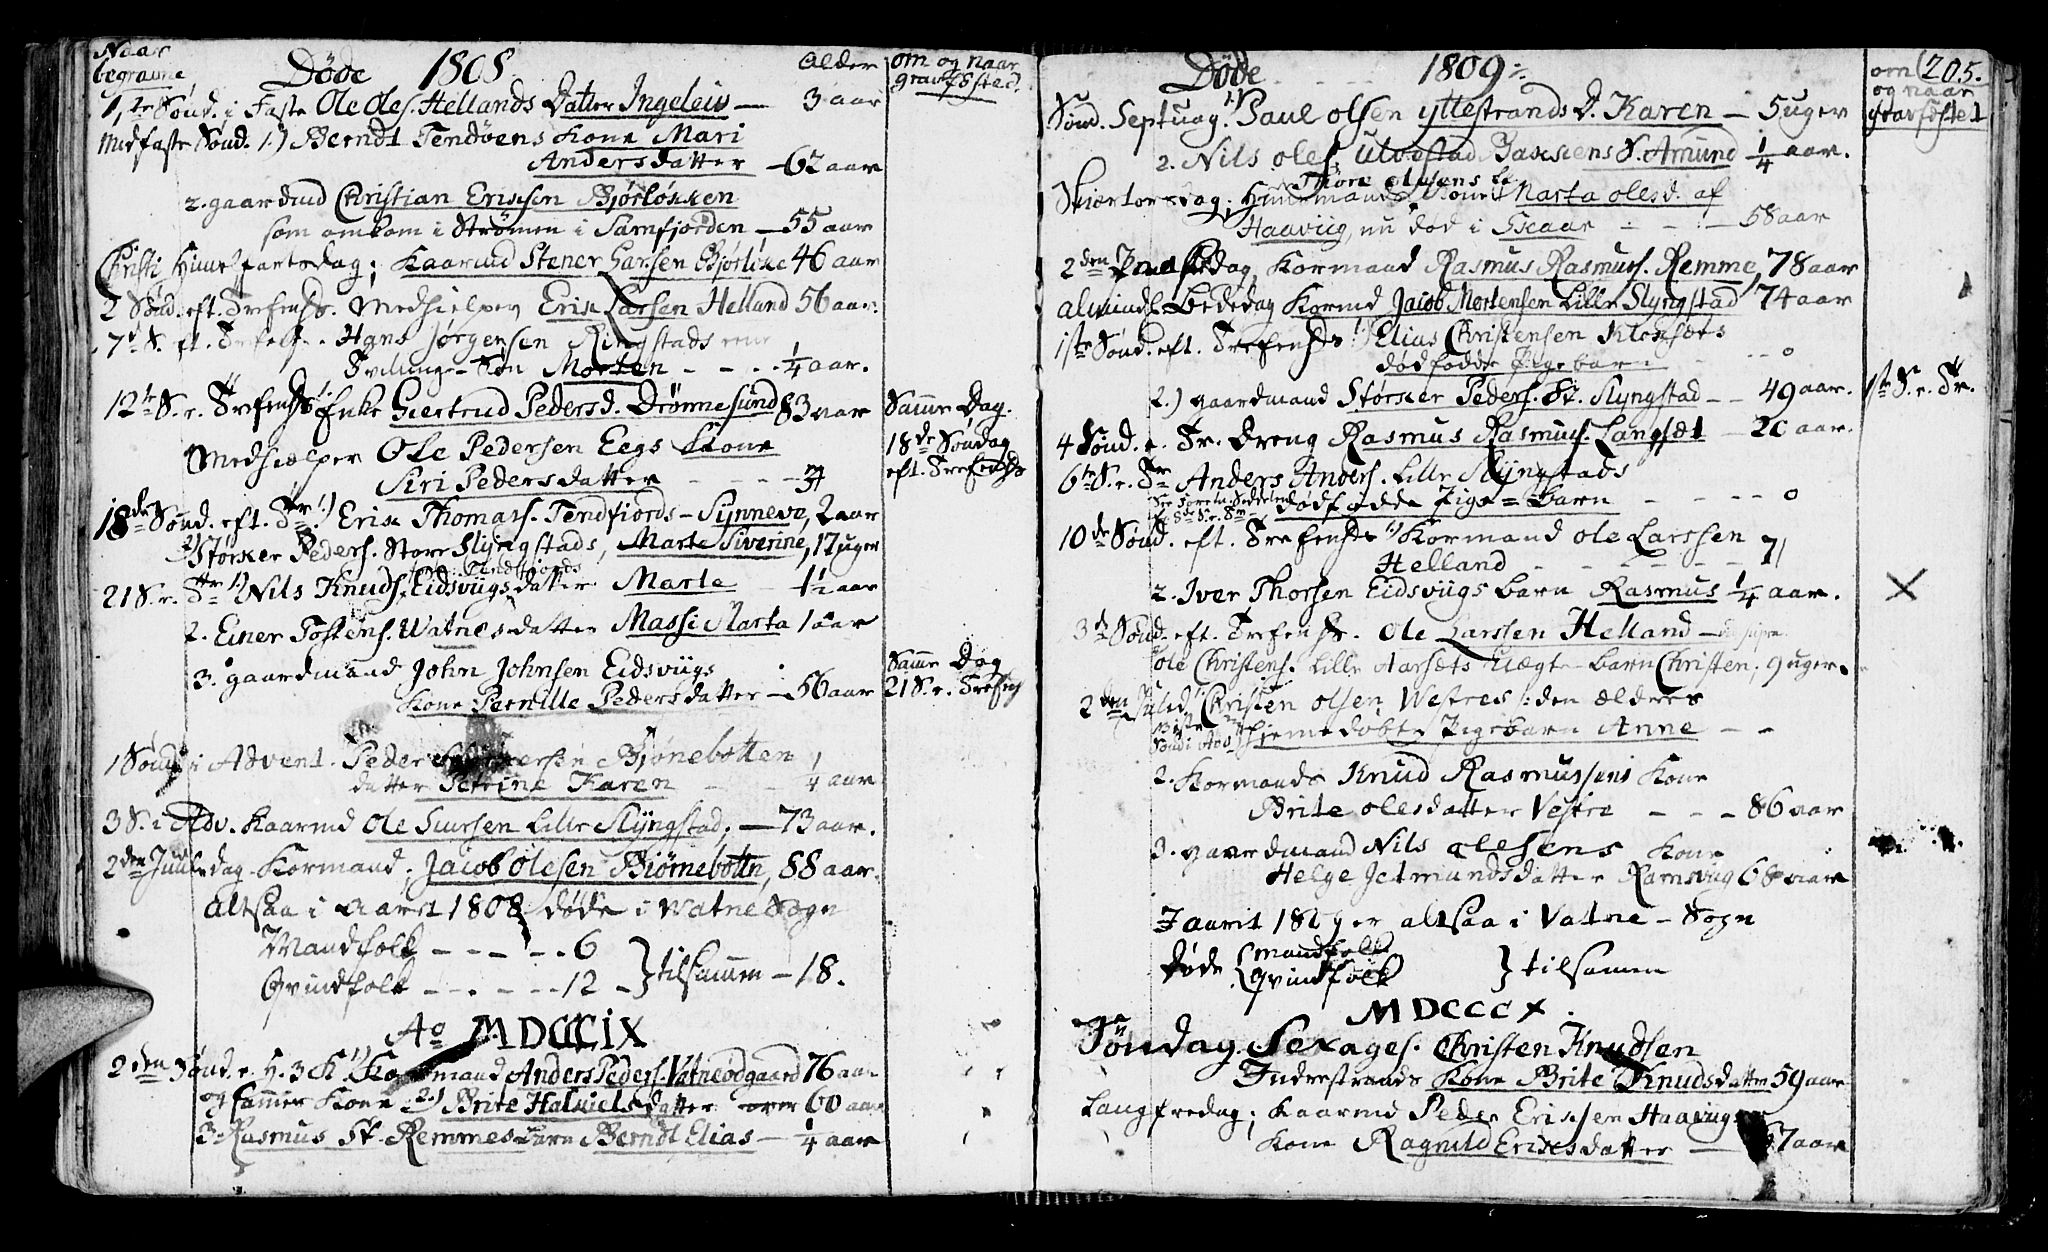 Naar begravne
Døde 1808
Alder
om og naar gravfæsted.
1,ste Sønd. i Faste Ole Oles. Hellands Datter Ingeleiv — 3 aar
Midfaste Sønd. 1.) Berndt Tendøens Kone Mari
Andersdatter — 62 aar
2. gaardmd Christian Erixsen Bjørløkken
som omkom i Strømen i Samfjorden — 55 aar
Christi Himelfartsdag; Kaarmd Stener Larsen Bjørløke 46 aar
2 Sønd. eft. Trefh. Medhielper Erik Larsen Helland 56 aar.
7d S. ef. Hans Jørgensen Ringstads
Tvillinge-Søn Morten - - - - 1/4 aar.
12te S. e. Enke Giertrud Pedersd. Drønnesund 83 aar
Samme Dag.
Medhielper Ole Pedersen Eegs Kone
18de Søndag
Siri Pedersdatter - - - - -
eft. Trefh.
18de Sønd. eft. Tr. 1.) Erik Thomas. Tendfiords - Synneve, 2 aar
2) Størker Peders. Store Slyngstads, Marte Siverine, 17 uger
Tendfjords
21 S. e. Tr. 1) Nils Knuds. Eidsviigs datter Marte 1 1/2 aar
2. Einer Tostens. Watnes datter Massi Marta 1 aar
3. gaardmand John Johnsen Eidsviigs
Samme Dag
Kone Pernille Pedersdatter — 56 aar
21 S. e. Trefh
1 Sønd. i Advent. Peder Bjønebotten
datter Petrine Karen - - 1/4 aar
3 S. i Adv. Kaarmd Ole Siursen Lille Slyngstad. — 73 aar.
2den Juuledag. Kormand, Jacob Olesen Biørnebottn, 88 aar.
altsaa i aaret 1808 døde i Watne Sogn
Mandfolk - - - - - 6
Qvindfolk - - - - - 12
} tilsammen — 18.
Ao MDCCCIX
2den Sønd. e. H. 3 K. 1) Kormand Anders Peders. Vatneødgaard 76 aar
og sammes Kone 2.) Brite Halkielsdatter over 60 aar
3. Rasmus St. Remmes barn Berndt Elias — 1/4 aar
Døde - - - - 1809
205.
om og naar gravfæstet
Sønd. Septuag. 1) Paul Olsen Yttestrands D. Karen — 5 uger
2. Nils Oles. Ulvestad S. Amund 1/4 aar.
Thore Olsens
Skiertorsdag; Huusmands Kone Marta Olesd. af
Haaviig, nu død i Skaar - - - 58 aar
2den Kormand Rasmus Rasmus. Remme, 78 aar
almindl. Bededag Kormd Jacob Mortensen Lille Slyngstad 74 aar
1ste Sønd. eft. Trefh. 1.) Elias Christensen Kloksets
dødfødde Pigebarn - - - - 0
2.) gaardmand Størker Peders. St. Slyngstad - - 49 aar.
1ste S. e. Tr.
4 Sønd. e. Tr. Dreng Rasmus Rasmus. Langset — 20 aar.
6te S. e. Tr. Anders Anders. Lille Slyngstads
dødfødde Pige-Barn - - - - 0
10de Sønd. eft. Trefh. 1) Kormand Ole Larssen
Helland - - - - - 71
2. Iver Thorsen Eidsviigs Barn Rasmus 1/4 aar.
Sønd. eft. Trefh. Ole Larssen Helland — supra
Ole Christens. Lille Aarsets Uægte Barn Christen, 9 uger.
2den Christen Olsen Westres : den ældere
hjemmedøbte Pigebarn Anne - -
2. Kormands Knud Rasmussens Kone
Brite Olesdatter Vestre - - - 86 aar
3. gaardmand Nils Olesens Kone
Helge Jetmundsdatter Ramsviig 68 aar
I aaret 1809 er altsaa i Vatne-Sogn
døde { mandfolk
Qvindfolk
} tilsamen
MDCCCX.
Søndag Sexages. Christen Knudsen
Indrestrands Kone Brite Knudsdatter 59 aar
Langfredag; Kaarmd Peder Erixsen Haaviigs
Kone Ragnild Erixsdatter — 67 aar